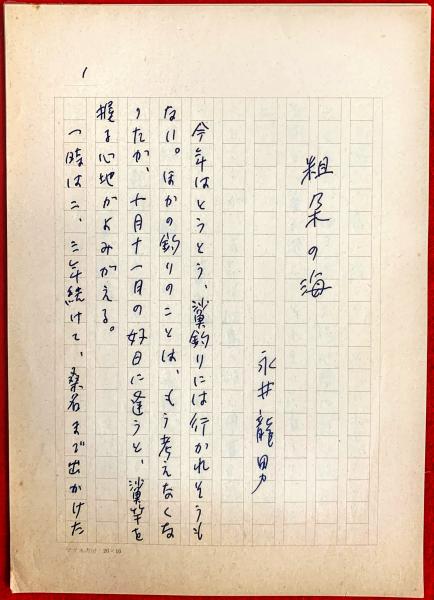 1
粗朶の海
永井龍男
今年はとうとう、鯊釣りには行かれそうも
ない。ほかの釣りのことは、もう考えなくな
ったが、十月十一月の好日に逢うと、鯊竿を
握る心地がよみがえる。
一時は二、三年続けて、桑名まで出かけた
20×10